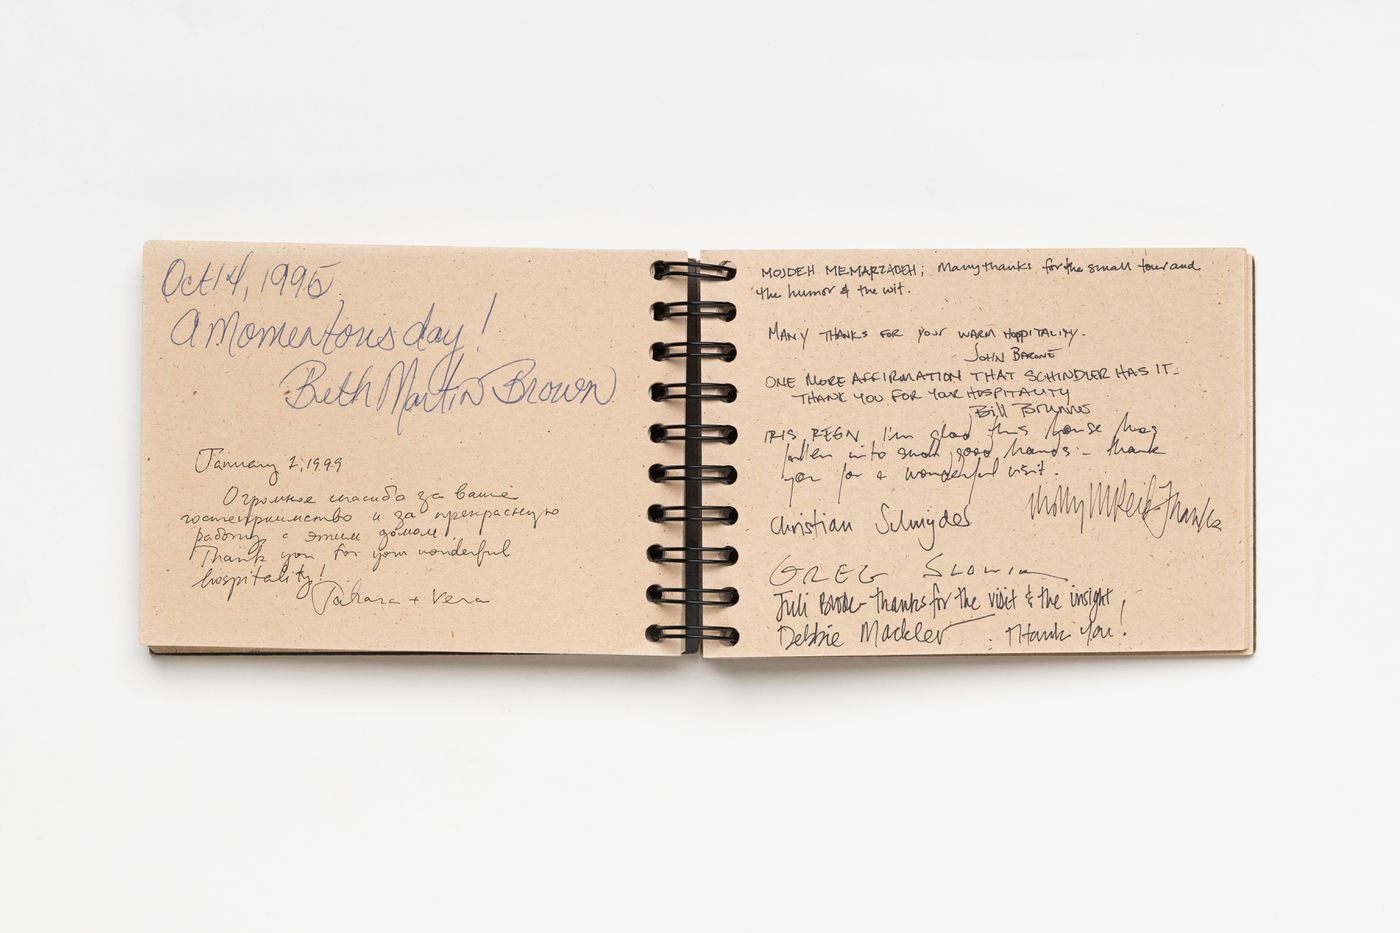 Oct 14, 1995
A Momentous day!
Beth Martin Brown
January 2, 1999
Огромное спасибо за ваше
гостеприимство и за прекрасную
работу с этим домом
Thank you for your wonderful
hospitality!
+ Vera
MOJDEH MEMARZADEH; Many thanks for the small tour and
the humor & the wit.
MANY THANKS FOR YOUR WARM HOSPITALITY.
JOHN BARONE
ONE MORE AFFIRMATION THAT SCHINDLER HAS IT.
THANK YOU FOR YOUR HOSPITALITY
Bill
IRIS REGN I'm glad this house has
fallen into such good hands - thank
you for a wonderful visit.
Molly Thanks
Christian
GREG
Juli - Thanks for the visit & the insight,
Debbie Mackler Thank you!